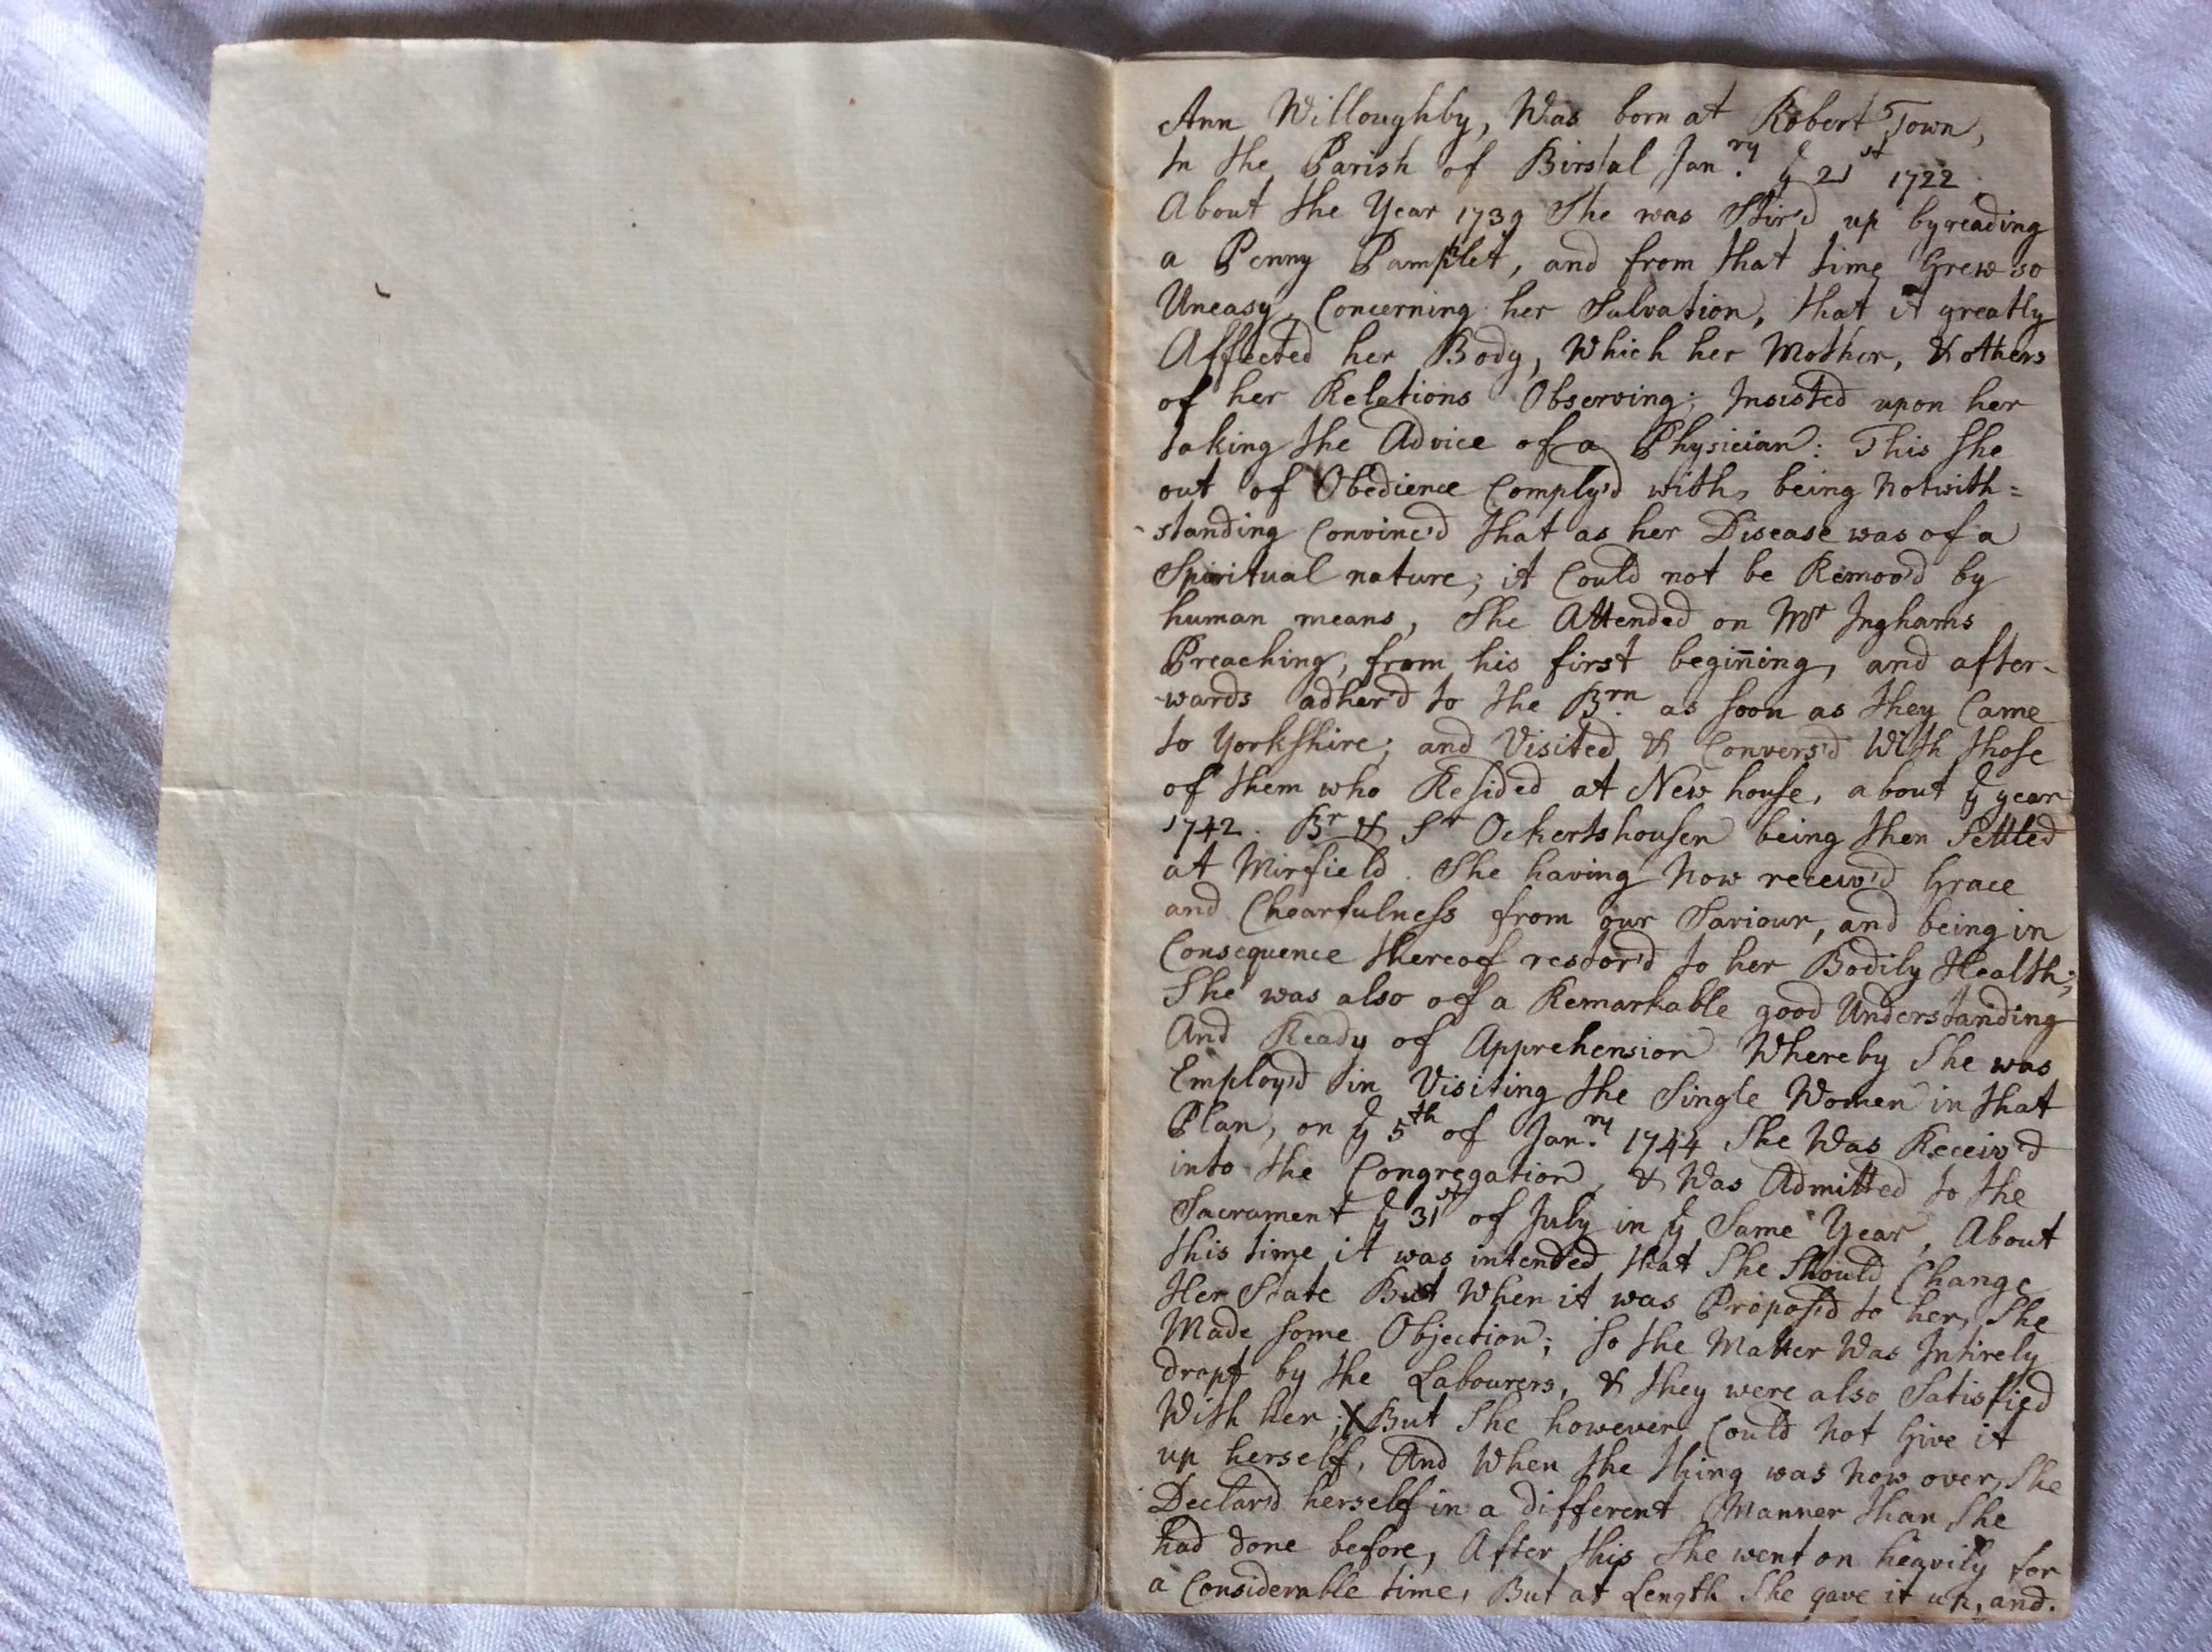 Ann Willoughby, Was born at Robert Town,
In the Parish of Birstal Jan.ry ye 21st 1722.
About the Year 1739 She was Stir'd up by reading
a Penny Pamphlet, and from that time Grew so
Uneasy, Concerning her Salvation, that it greatly
Affected her Body, Which her Mother, & others
of her Relations Observing; Insisted upon her
taking the Advice of a Physician: This She
out of Obedience Comply'd with, being Notwith=
-standing Convinc'd that as her Disease was of a
Spiritual nature; it Could not be Remov'd by
human means, She Attended on Mr Inghams
Preaching, from his first begin̄ing, and after-
-wards adher'd to the Brn. as soon as they Came
to Yorkshire; and Visited & Convers'd With those
of them who Resided at New house, about ye year
1742. Br & Sr Ockertshousen being then Settled
at Mirfield. She having Now receiv'd Grace
and Chearfulness from our Saviour, and being in
Consequence thereof restor'd to her Bodily Health;
She was also of a Remarkable good Understanding
And Ready of Apprehension Whereby She was
Employ'd in Visiting the Single Women in that
Plan, on ye 5th of Jan.ry 1744 She Was Receiv'd
into the Congregation, & Was Admitted to the
Sacrament ye 31st of July in ye Same Year, About
this time it was intended that She Should Change
Her State But When it was Propos'd to her, She
Made some Objection; so the Matter Was Intirely
dropt by the Labourers, & they were also Satisfied
With her; X But She however Could Not Give it
up herself, And When the thing was Now over, She
Declar'd herself in a different Manner than She
had done before, After this She went on heavily for
a Considerable time, But at Length She gave it up, and.